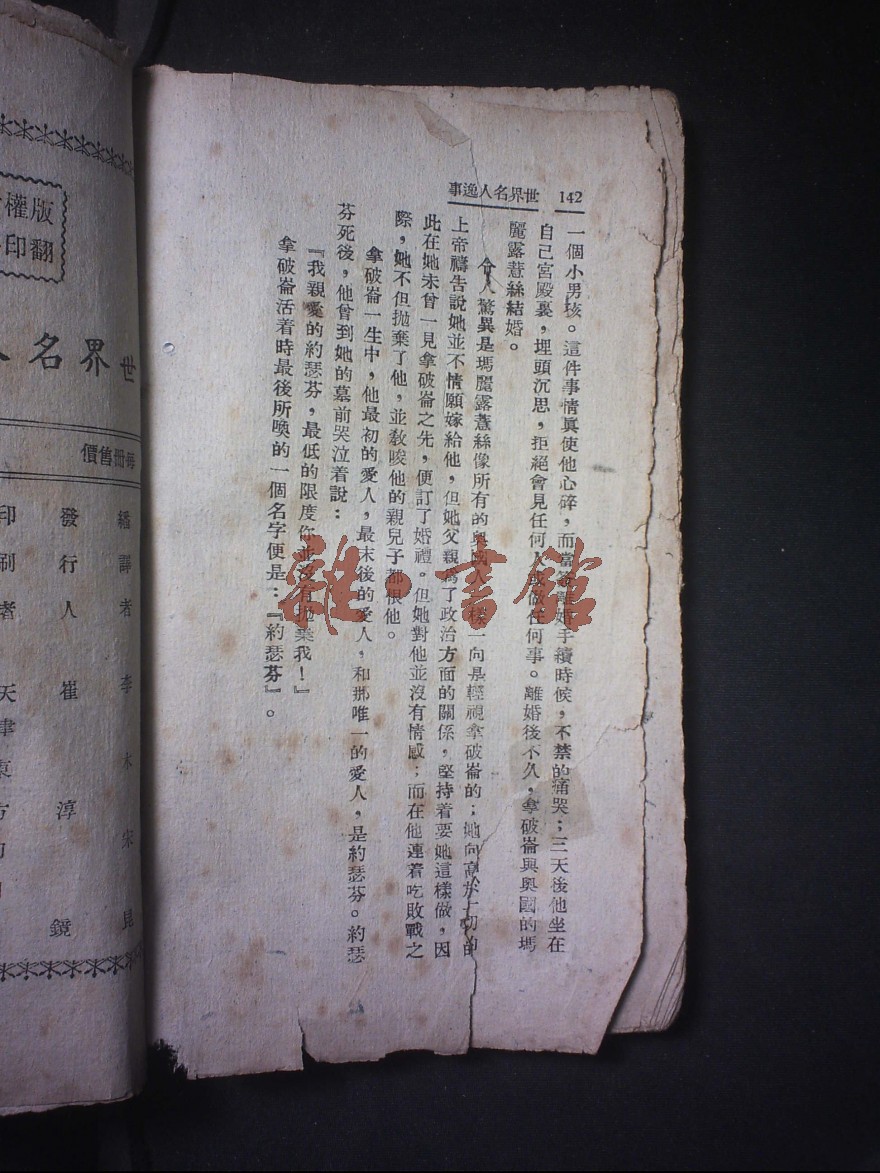 142 世界名人逸事
一個小男孩。這件事情眞使他心碎，而當簽離婚手續時候，不禁的痛哭；三天後他坐在
自己宮殿裏，埋頭沉思，拒絕會見任何人或做任何事。離婚後不久，拿破崙與奧國的瑪
麗露薏絲結婚。
令人驚異是瑪麗露薏絲像所有的奧國人一樣一向是輕視拿破崙的；她向高於一切的
上帝禱告說她並不情願嫁給他，但她父親爲了政治方面的關係，堅持着要她這樣做，因
此在她未曾一見拿破崙之先，便訂了婚禮。但她對他並沒有情感；而在他連着吃敗戰之
際，她不但抛棄了他，並敎唆他的親兒子都恨他。
拿破崙一生中，他最初的愛人，最末後的愛人，和那唯一的愛人，是約瑟芬。約瑟
芬死後，他曾到她的墓前哭泣着說：
『我親愛的約瑟芬，最低的限度你並沒有抛棄我！』
拿破崙活着時最後所喚的一個名字便是：『約瑟芬』。
雜·書館
版權
翻印
世界名人
每冊售價
繙譯者 李木宋 昆
發行人 崔淳鏡
印刷者 天津東方